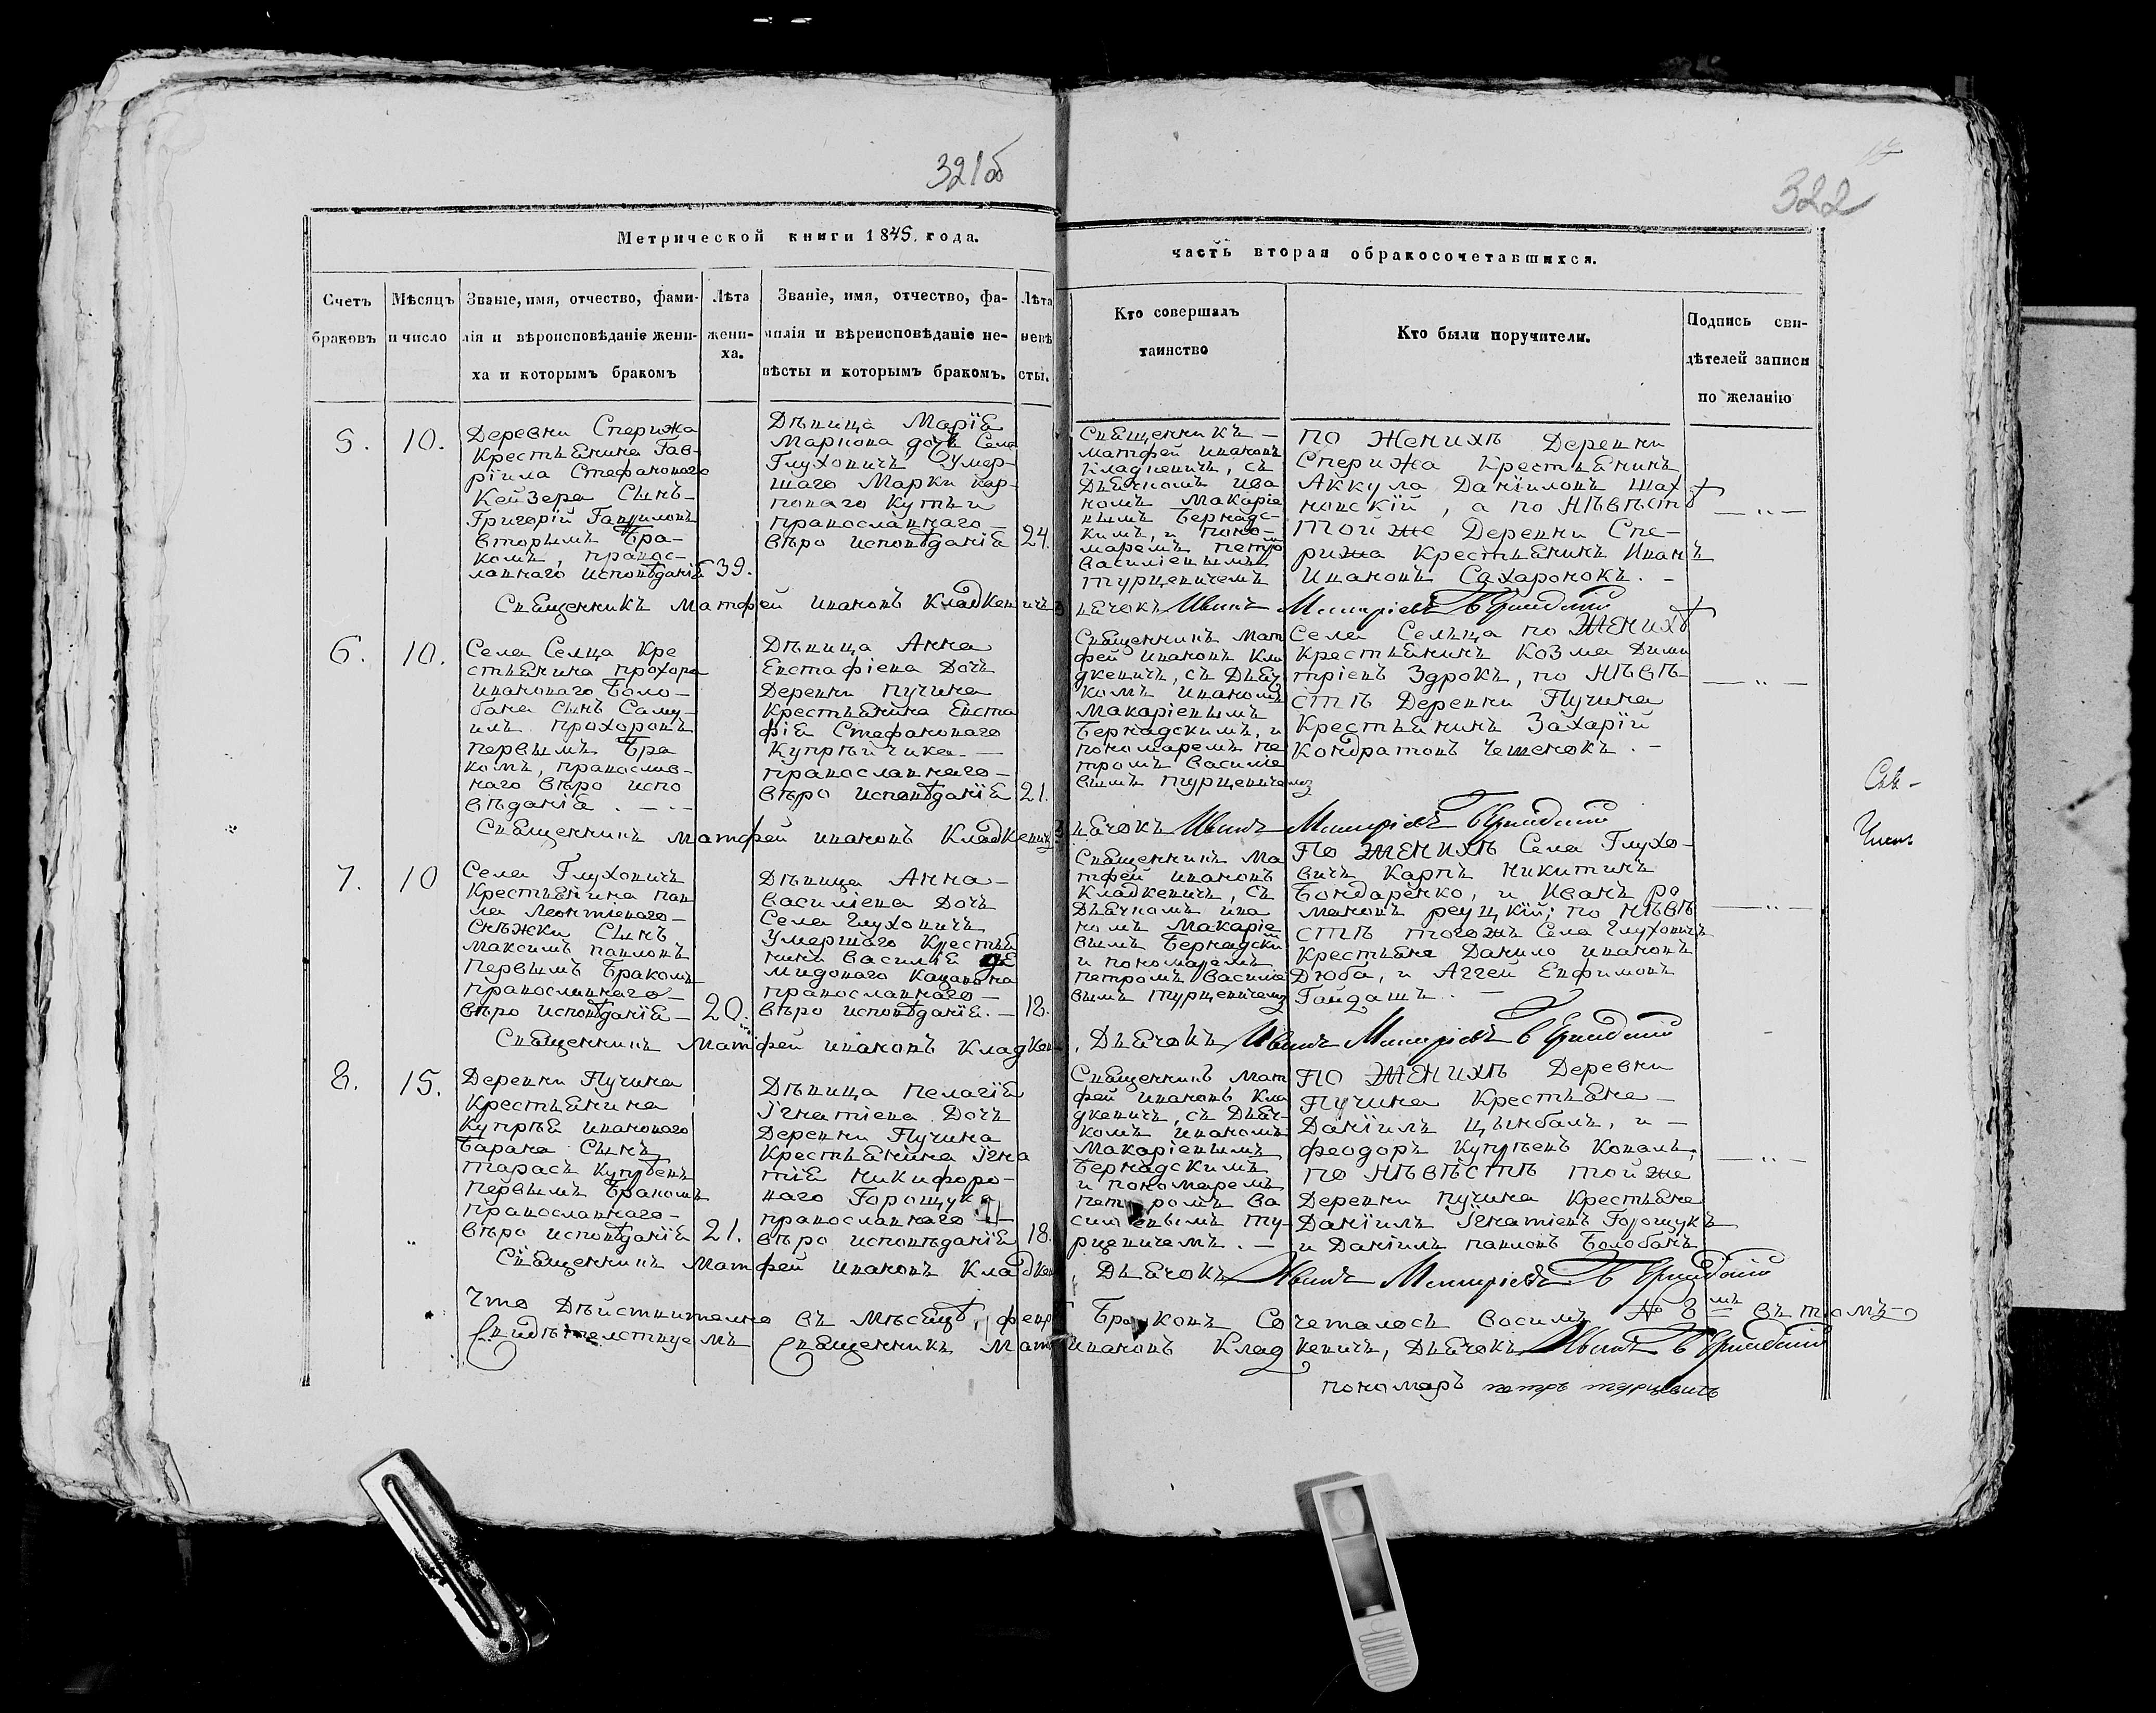 321об
322
Метрической книги 1845. года.
часть вторая обракосочетавшихся.
Счетъ браковъ
Мѣсяцъ и число
Званіе, имя, отчество, фами-
лія и вѣроисповѣданіе жени-
ха и которымъ бракомъ
Лѣта жени-
ха.
Званіе, имя, отчество, фа-
милія и вѣреисповѣданіе не-
вѣсты и которымъ бракомъ.
Лѣта невѣ
сты.
Кто совершалъ
таинство
Кто были поручители.
Подпись сви-
дѣтелей записи
по желанію
5.
10.
Деревни Спирижа
Крестьянина Гав-
ріила Стефановаго
Кейзера Сынъ
Григорій Гавриловъ
вторымъ Бра-
комъ, правос-
лавнаго исповѣданія
39.
Дѣвица Марія
Маркова дочь Села
Глуховичъ Умер-
шаго Марки кар-
поваго Кутьи
православнаго
вѣро исповѣданія
24.
Священникъ
матфей ивановъ
Кладкевичъ, съ
Дьячкомъ ива
номъ Макаріе
вымъ Бернадс-
кимъ, и поно-
маремъ петро
василіевымъ
турцевичемъ
по Женихѣ Деревни
Сперижа Крестьянинъ
Аккула Даніиловъ Шах
новскій, а по Нѣвѣстѣ
той же Деревни Спе-
рижа Крестьянинъ Иванъ
Ивановъ Сахаровокъ.
Священникъ Матфей ивановъ Кладкевичъ
Дьячокъ Иванъ
6.
10.
Села Селца Кре
стьянина прохора
ивановаго Боло-
бана сынъ Саму-
илъ прохоровъ
первымъ Бра
комъ, православ-
наго вѣро испо
вѣданія
Дѣвица Анна
Евстафіева Дочь
Деревни Пучина
Крестьянина Евста
фія Стефановаго
Купрѣйчика
православнаго
вѣро исповѣданія
21.
Священникъ Мат
фей ивановъ Кла
дкевичъ, съ Дьяч
комъ иваномъ
Макаріевымъ
Бернадскимъ, и
пономаремъ пе
тромъ василіе
вымъ турцевичемъ
Села Сельца по Женихѣ
крестьянинъ Козма Дими
тріевъ Здрокъ, по Нѣвѣ
стѣ Деревни Пучина
Крестьянинъ Захарій
Кондратовъ Чешенокъ.
Священникъ матфей ивановъ Кладкевичъ
Дьячокъ Иванъ
7.
10
Села Глуховичъ
Крестьянина пав
ла Леонтіеваго
Снѣжки Сынъ
максимъ павловъ
первымъ Бракомъ
православнаго
вѣро исповѣданія
20.
Дѣвица Анна
василіева Дочь
Села глуховичъ
Умершаго Крестья
нина Василія де
мидоваго
православнаго
вѣро исповѣданія.
18.
Священникъ Ма
тфей ивановъ
Кладкевичъ, съ
Дьячкомъ ива
номъ Макаріе
вымъ Бернадски
и пономаремъ
петромъ василіе
вымъ турцевичемъ
По Женихѣ Села Глухо-
вичъ Карпъ никитинъ
Бондаренко, и Иванъ ро
мановъ реуцкій; по Нѣвѣ
стѣ тогожъ Села Глуховичъ
Крестьяне Данило ивановъ
Дюба, и Аггей Евфимовъ
Гайдашъ.
Священникъ Матфей ивановъ Кладкев
Дьячокъ Иванъ
8.
15.
Деревни Пучина
Крестьянина
Купрѣя ивановаго
Барана Сынъ
тарасъ Купрѣевъ
первымъ Бракомъ
православнаго
вѣро исповѣданія
21.
Дѣвица пелагія
Игнатіева Дочь
Деревни Пучина
Крестьянина Игна
тія Никифоро-
ваго Горощука
православнаго
вѣро исповѣданія
18.
Священникъ Мат
фей ивановъ Кла
дкевичъ, съ Дьяч-
комъ иваномъ
Макаріевымъ
Бернадскимъ
и пономаремъ
петромъ ва
силіевымъ ту-
рцевичемъ.
По Женихѣ Деревни
Пучина Крестьяне
Даніилъ Цымбалъ, и
феодоръ Купрѣевъ Коваль;
по Нѣвѣстѣ той же
Деревни Пучина Крестьяне
Даніилъ Игнатіевъ Горощукъ
и Даніилъ павловъ Болобанъ
Священникъ Матфей ивановъ Кладкев
Дьячокъ Иванъ
Что Дѣйствително въ мѣсяцѣ, февр Браковъ Сочеталось восимъ № 8мъ въ томъ
Свидѣтелствуемъ Священникъ Мат ивановъ Кладкевичъ, Дьячокъ Иванъ
пономаръ петръ турцевичъ